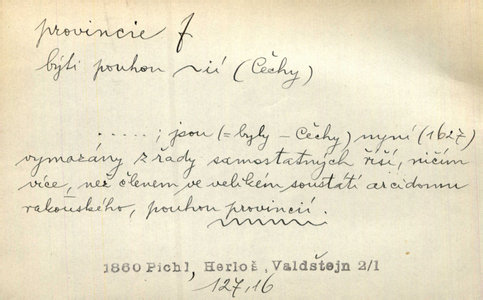 provincie f
býti pouhou ~ií (Čechy)
.....; jsou (=byly – Čechy) nyní (1627)
vymazány z řady samostatných říší, ničím
více, než členem ve velikém soustátí arcidomu
rakouského, pouhou provincií.
1860 Pichl, Herloš, Valdštejn 2/1
127,16